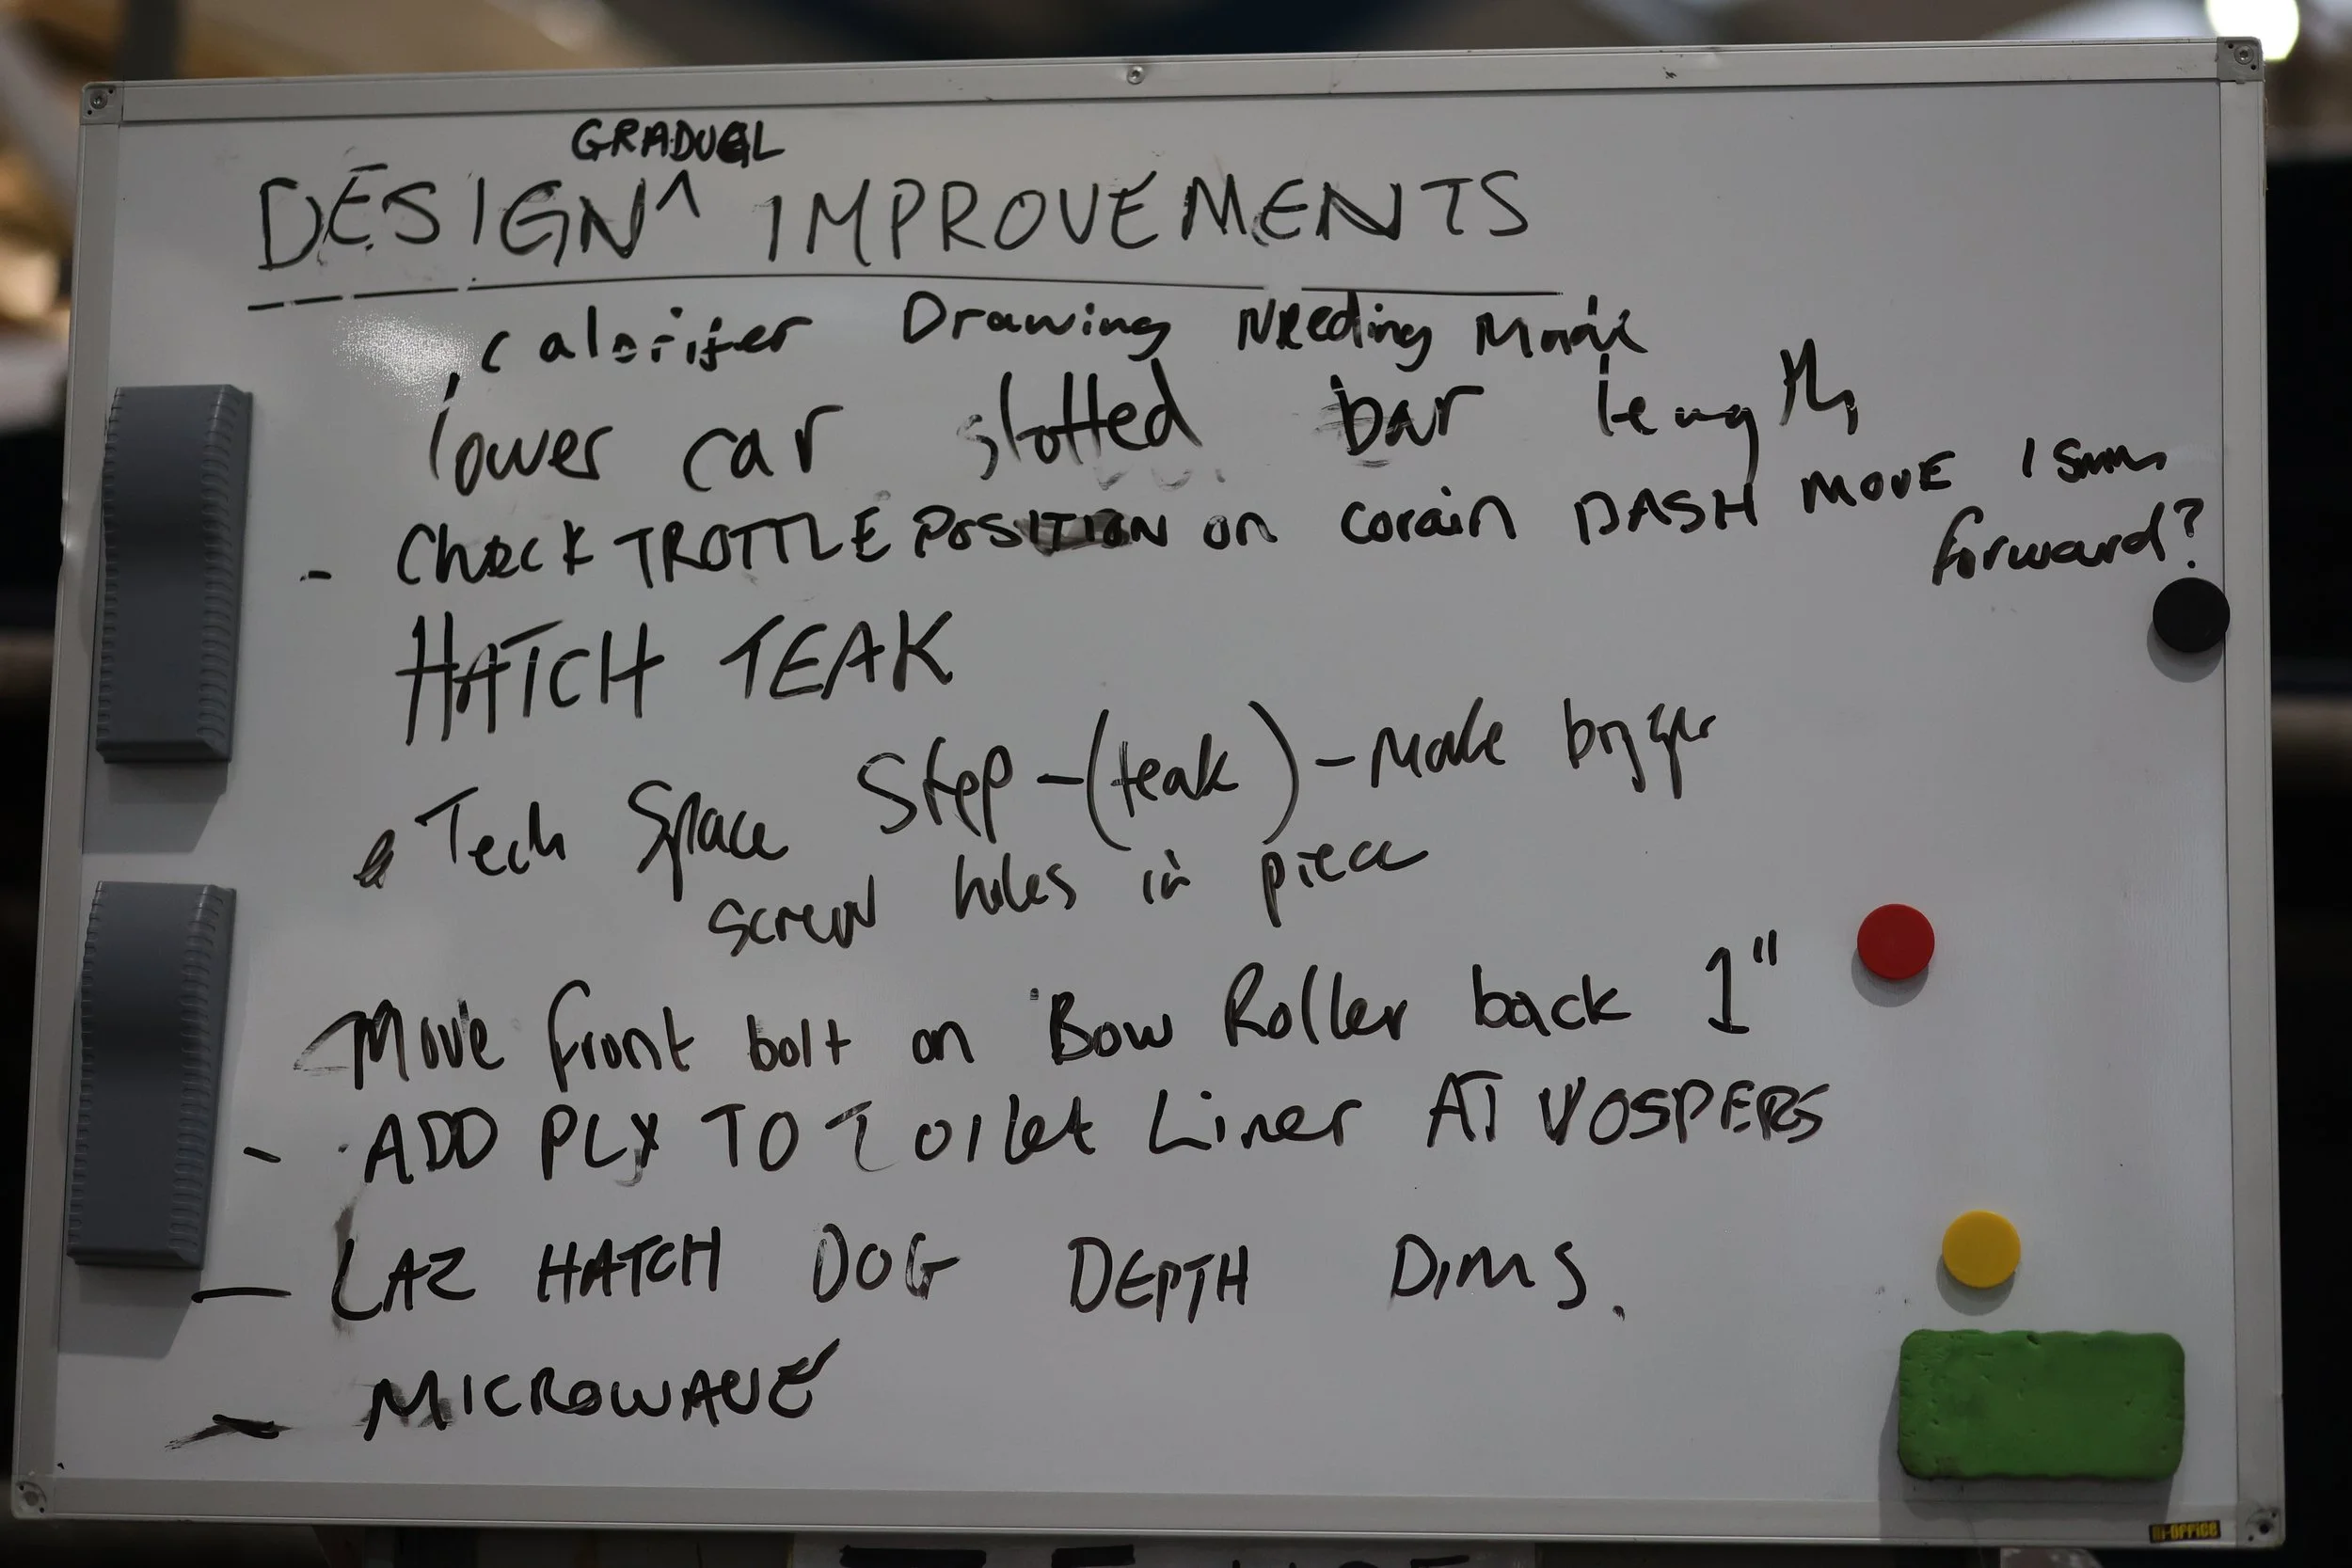 GRADUAL
DESIGN ^ IMPROVEMENTS
Calorifer Drawing Needing
lower car slotted bar length
- Check TROTTLE POSITION on corain DASH MOVE 15mm
forward?
HATCH TEAK
Tech Space Step - (teak) - Make bigger
screw holes in piece
Move front bolt on Bow Roller back 1"
- ADD PLY TO Toilet Liner AT VOSPERS
- LAZ HATCH DOG DEPTH DIMS.
- MICROWAVE
Bi-OFFICE